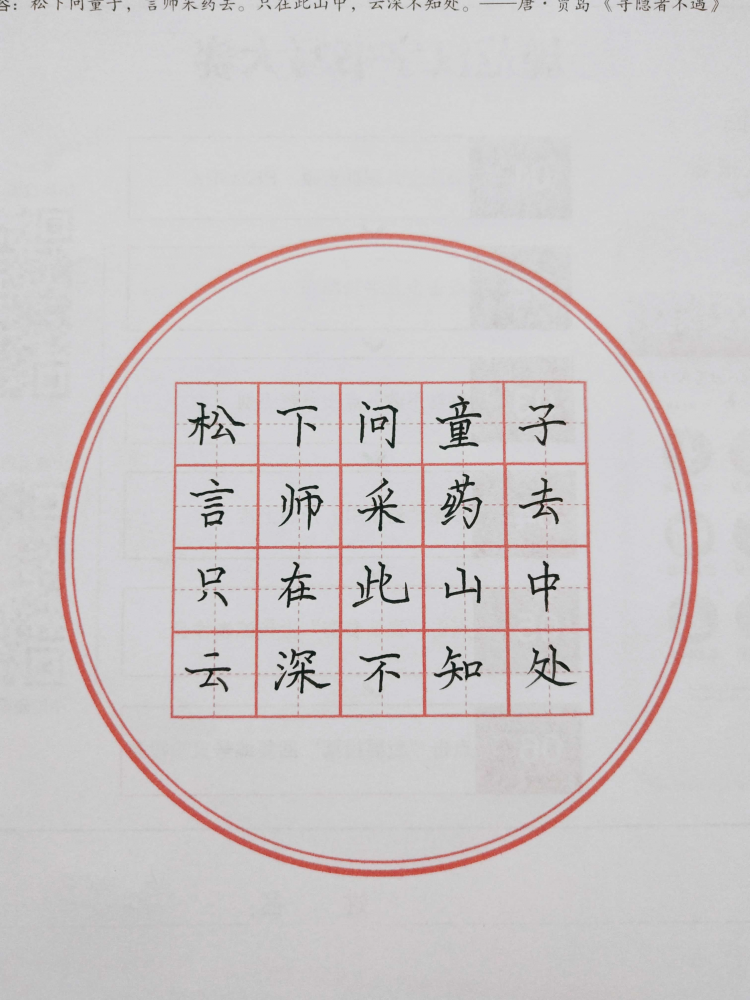 容：松下问童子，言师采药去。只在此山中，云深不知处。——唐·贾岛《寻隐者不遇》
松下问童子
言师采药去
只在此山中
云深不知处